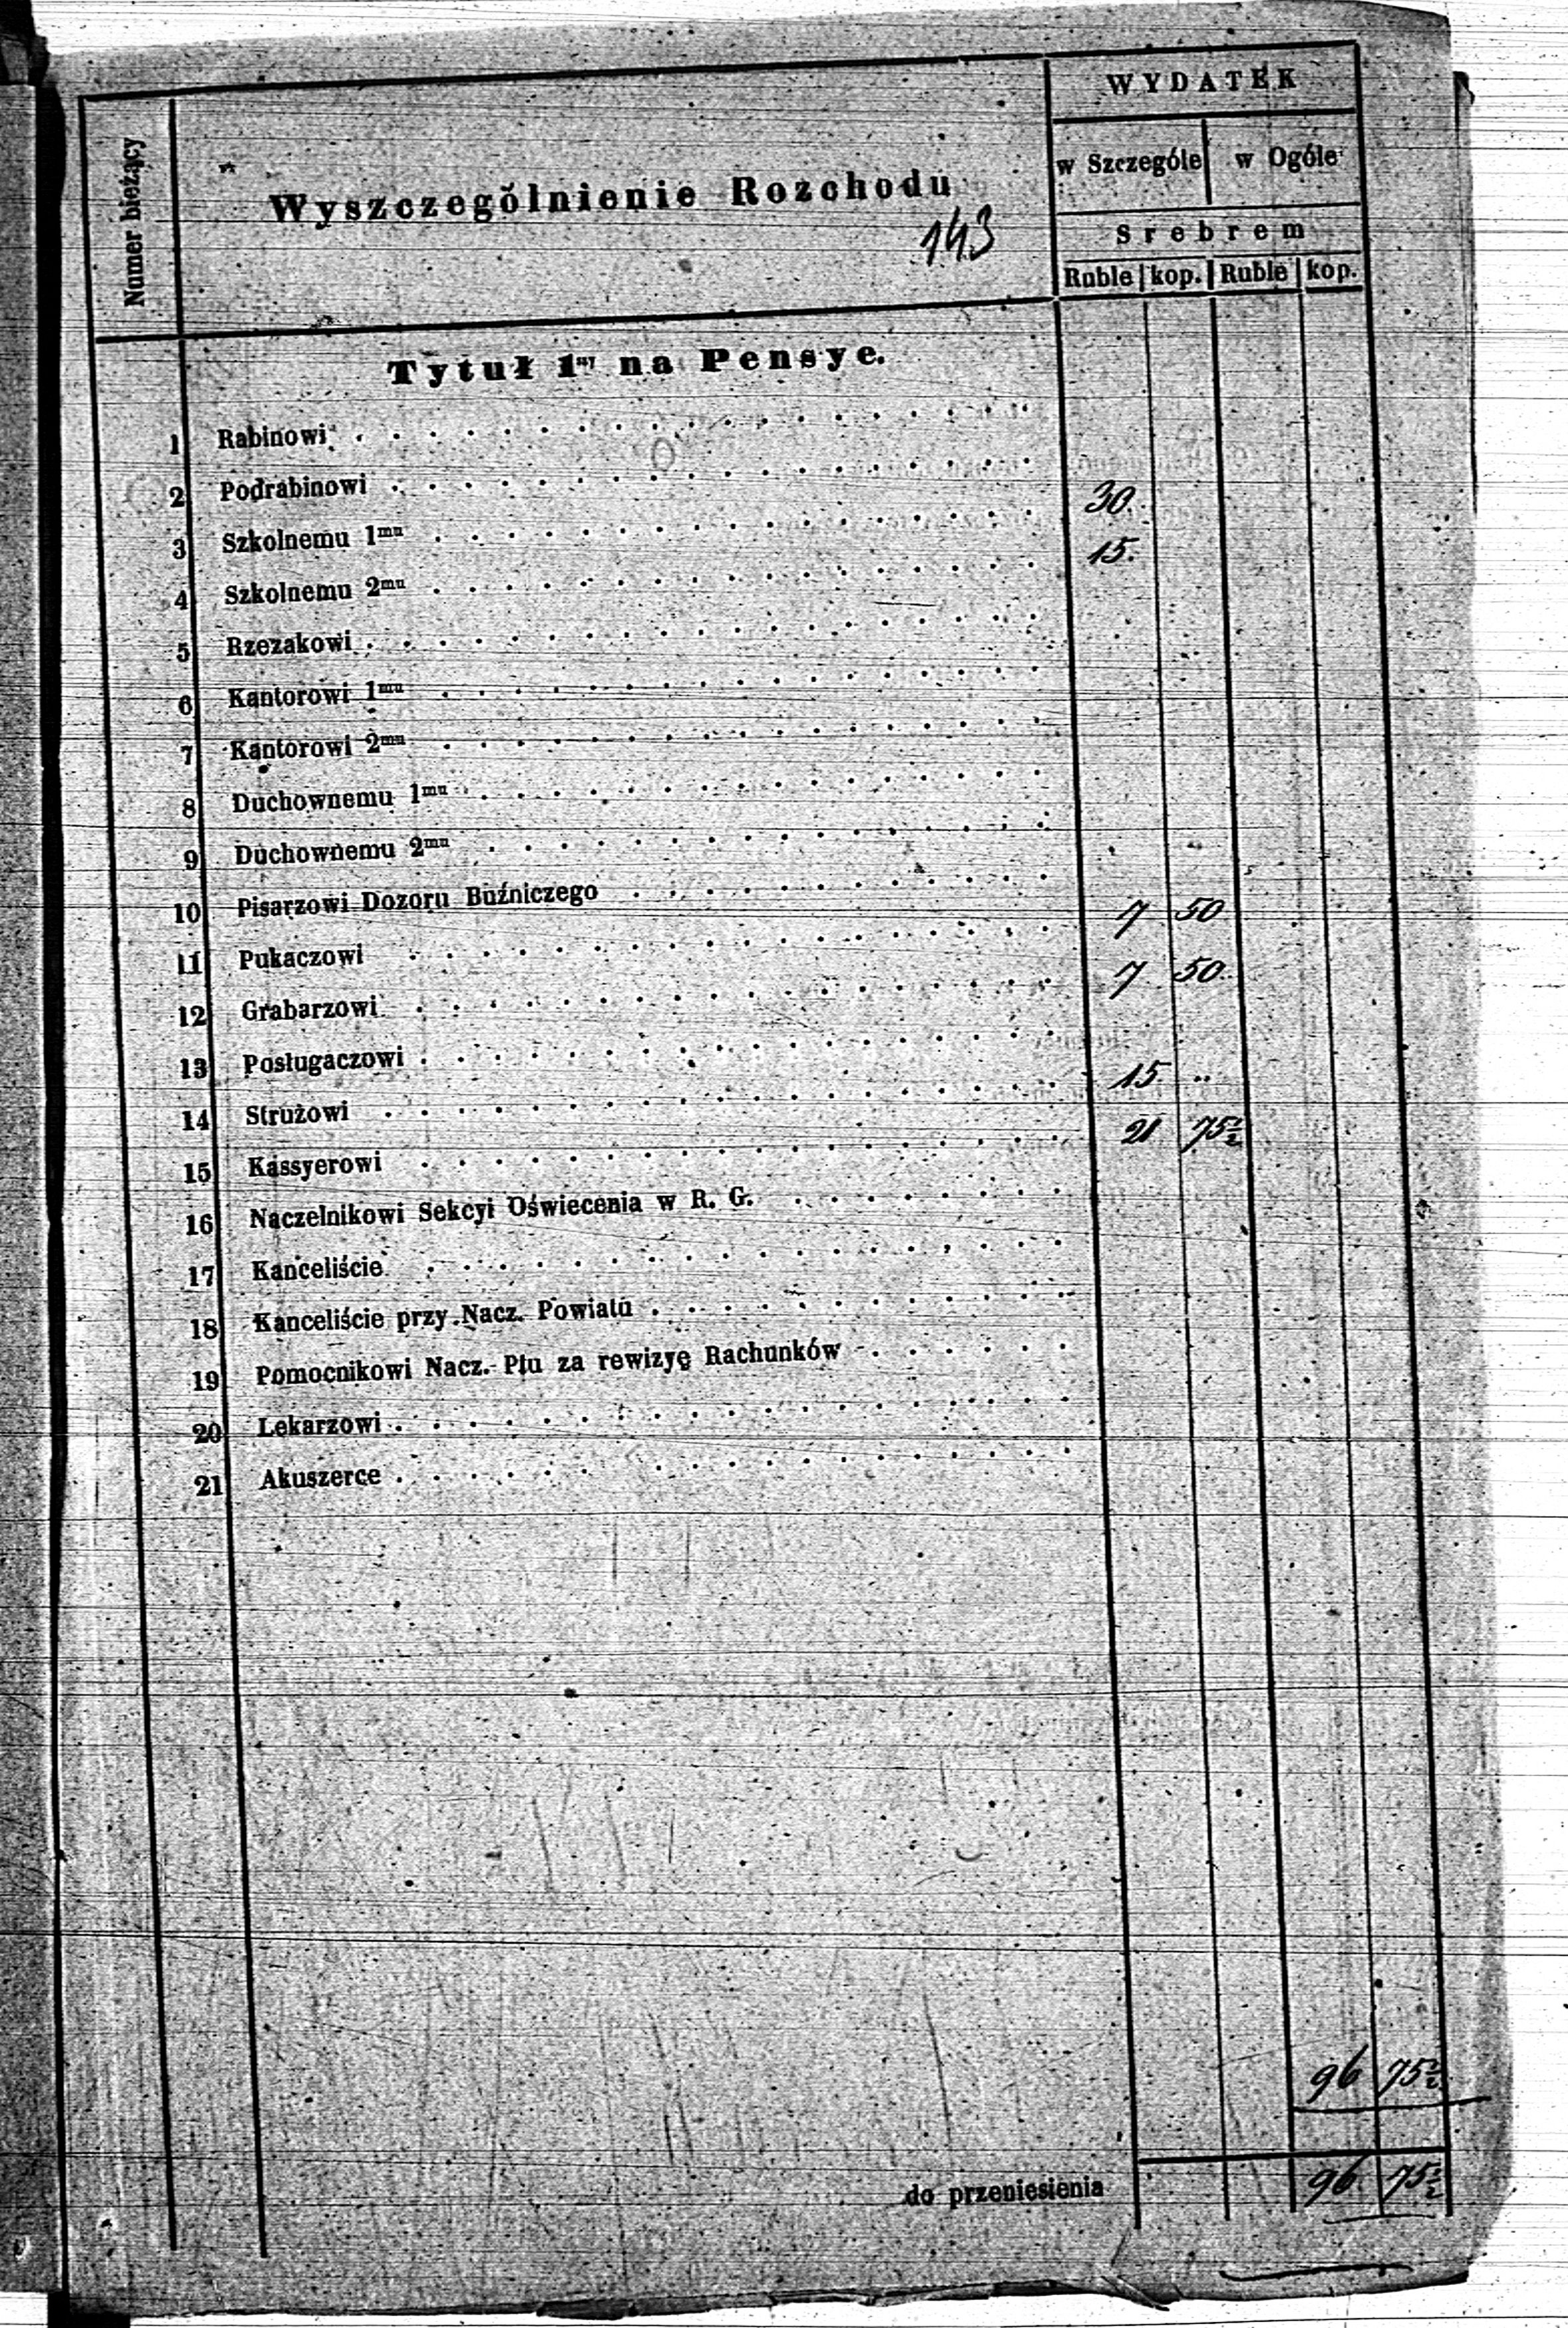 WYDATEK
Numer bieżący
Wyszczególnienie Rozchodu
w Szczególe w Ogóle
143
Srebrem
Ruble kop. Ruble kop.
Tytuł 1ny na Pensye.
1 Rabinowi
2 Podrabinowi
3 Szkolnemu 1mu 30.
4 Szkolnemu 2mu 15.
5 Rzezakowi
6 Kantorowi 1mu
7 Kantorowi 2mu
8 Duchownemu 1mu
9 Duchownemu 2mu
10 Pisarzowi Dozoru Buźniczego
11 Pukaczowi 7 50
12 Grabarzowi 7 50
13 Posługaczowi
14 Stružowi 15 "
15 Kassyerowi 21 75½
16 Naczelnikowi Sekcyi Oświecenia w R. G.
17 Kanceliście
18 Kanceliście przy Nacz. Powiatu
19 Pomocnikowi Nacz. Ptu za rewizyę Rachunków
20 Lekarzowi
21 Akuszerce
96 75½
do przeniesienia 96 75½